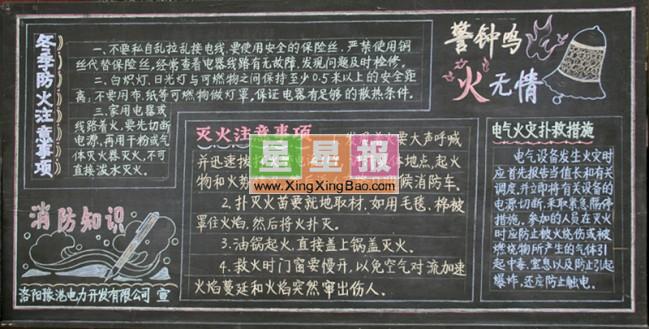 冬季防火注意事项
一、不要私自乱拉乱接电线,要使用安全的保险丝,严禁使用铜
丝代替保险丝,经常查看电器线路有无故障,发现问题及时检修。
二、白炽灯、日光灯与可燃物之间保持至少0.5米以上的安全距
离,不要用布、纸等可燃物做灯罩,保证电器有足够的散热条件。
三、家用电器或
线路着火,要先切断
电源,再用干粉或气
体灭火器灭火,不可
直接泼水灭火。
消防知识
洛阳豫港电力开发有限公司 宣
灭火注意事项
要大声呼喊
并迅速拨
地点,起火
物和火势
候消防车。
2、扑灭火苗要就地取材,如用毛毯、棉被
罩住火焰,然后将火扑灭。
3、油锅起火,直接盖上锅盖灭火。
4、救火时门窗要慢开,以免空气对流加速
火焰蔓延和火焰突然窜出伤人。
星星报
www.XingXingBao.com
警钟鸣
火无情
电气火灾扑救措施
电气设备发生火灾时
应首先报告当值长和有关
调度,并立即将有关设备的
电源切断,采取紧急隔停
措施,参加的人员在灭火
时应防止被火烧伤或被
燃烧物所产生的气体引
起中毒、窒息以及防止引起
爆炸,还应防止触电。